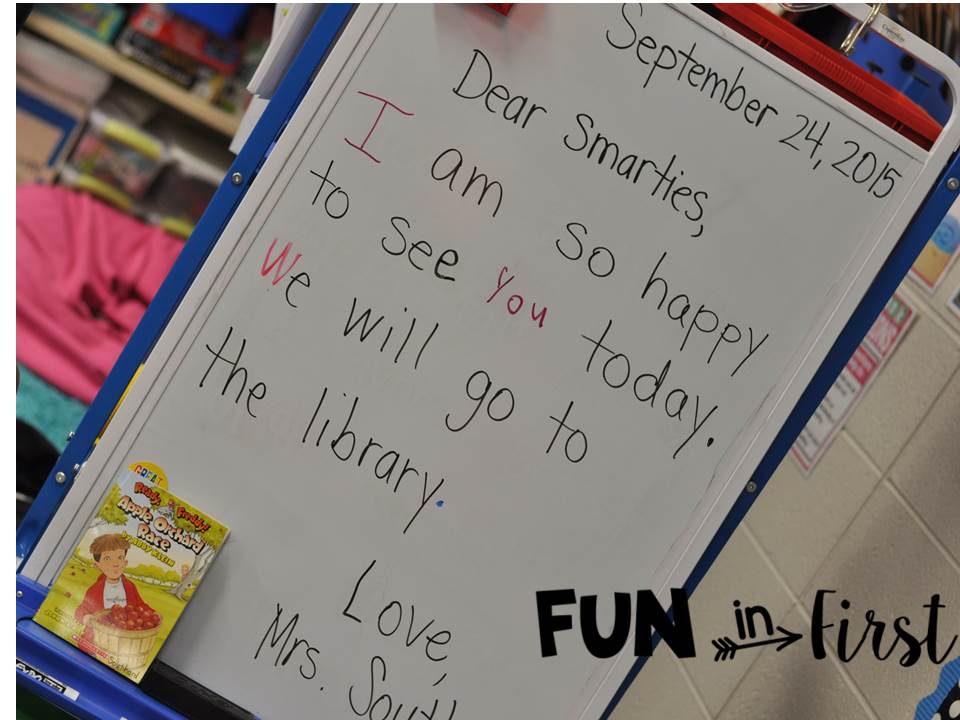 September 24, 2015
Dear Smarties,
I am so happy
to see you today.
We will go to
the library.
Love,
Mrs. Sout
Ready, Freddy!
Apple Orchard
Race
by Abby Klein
FUN in First